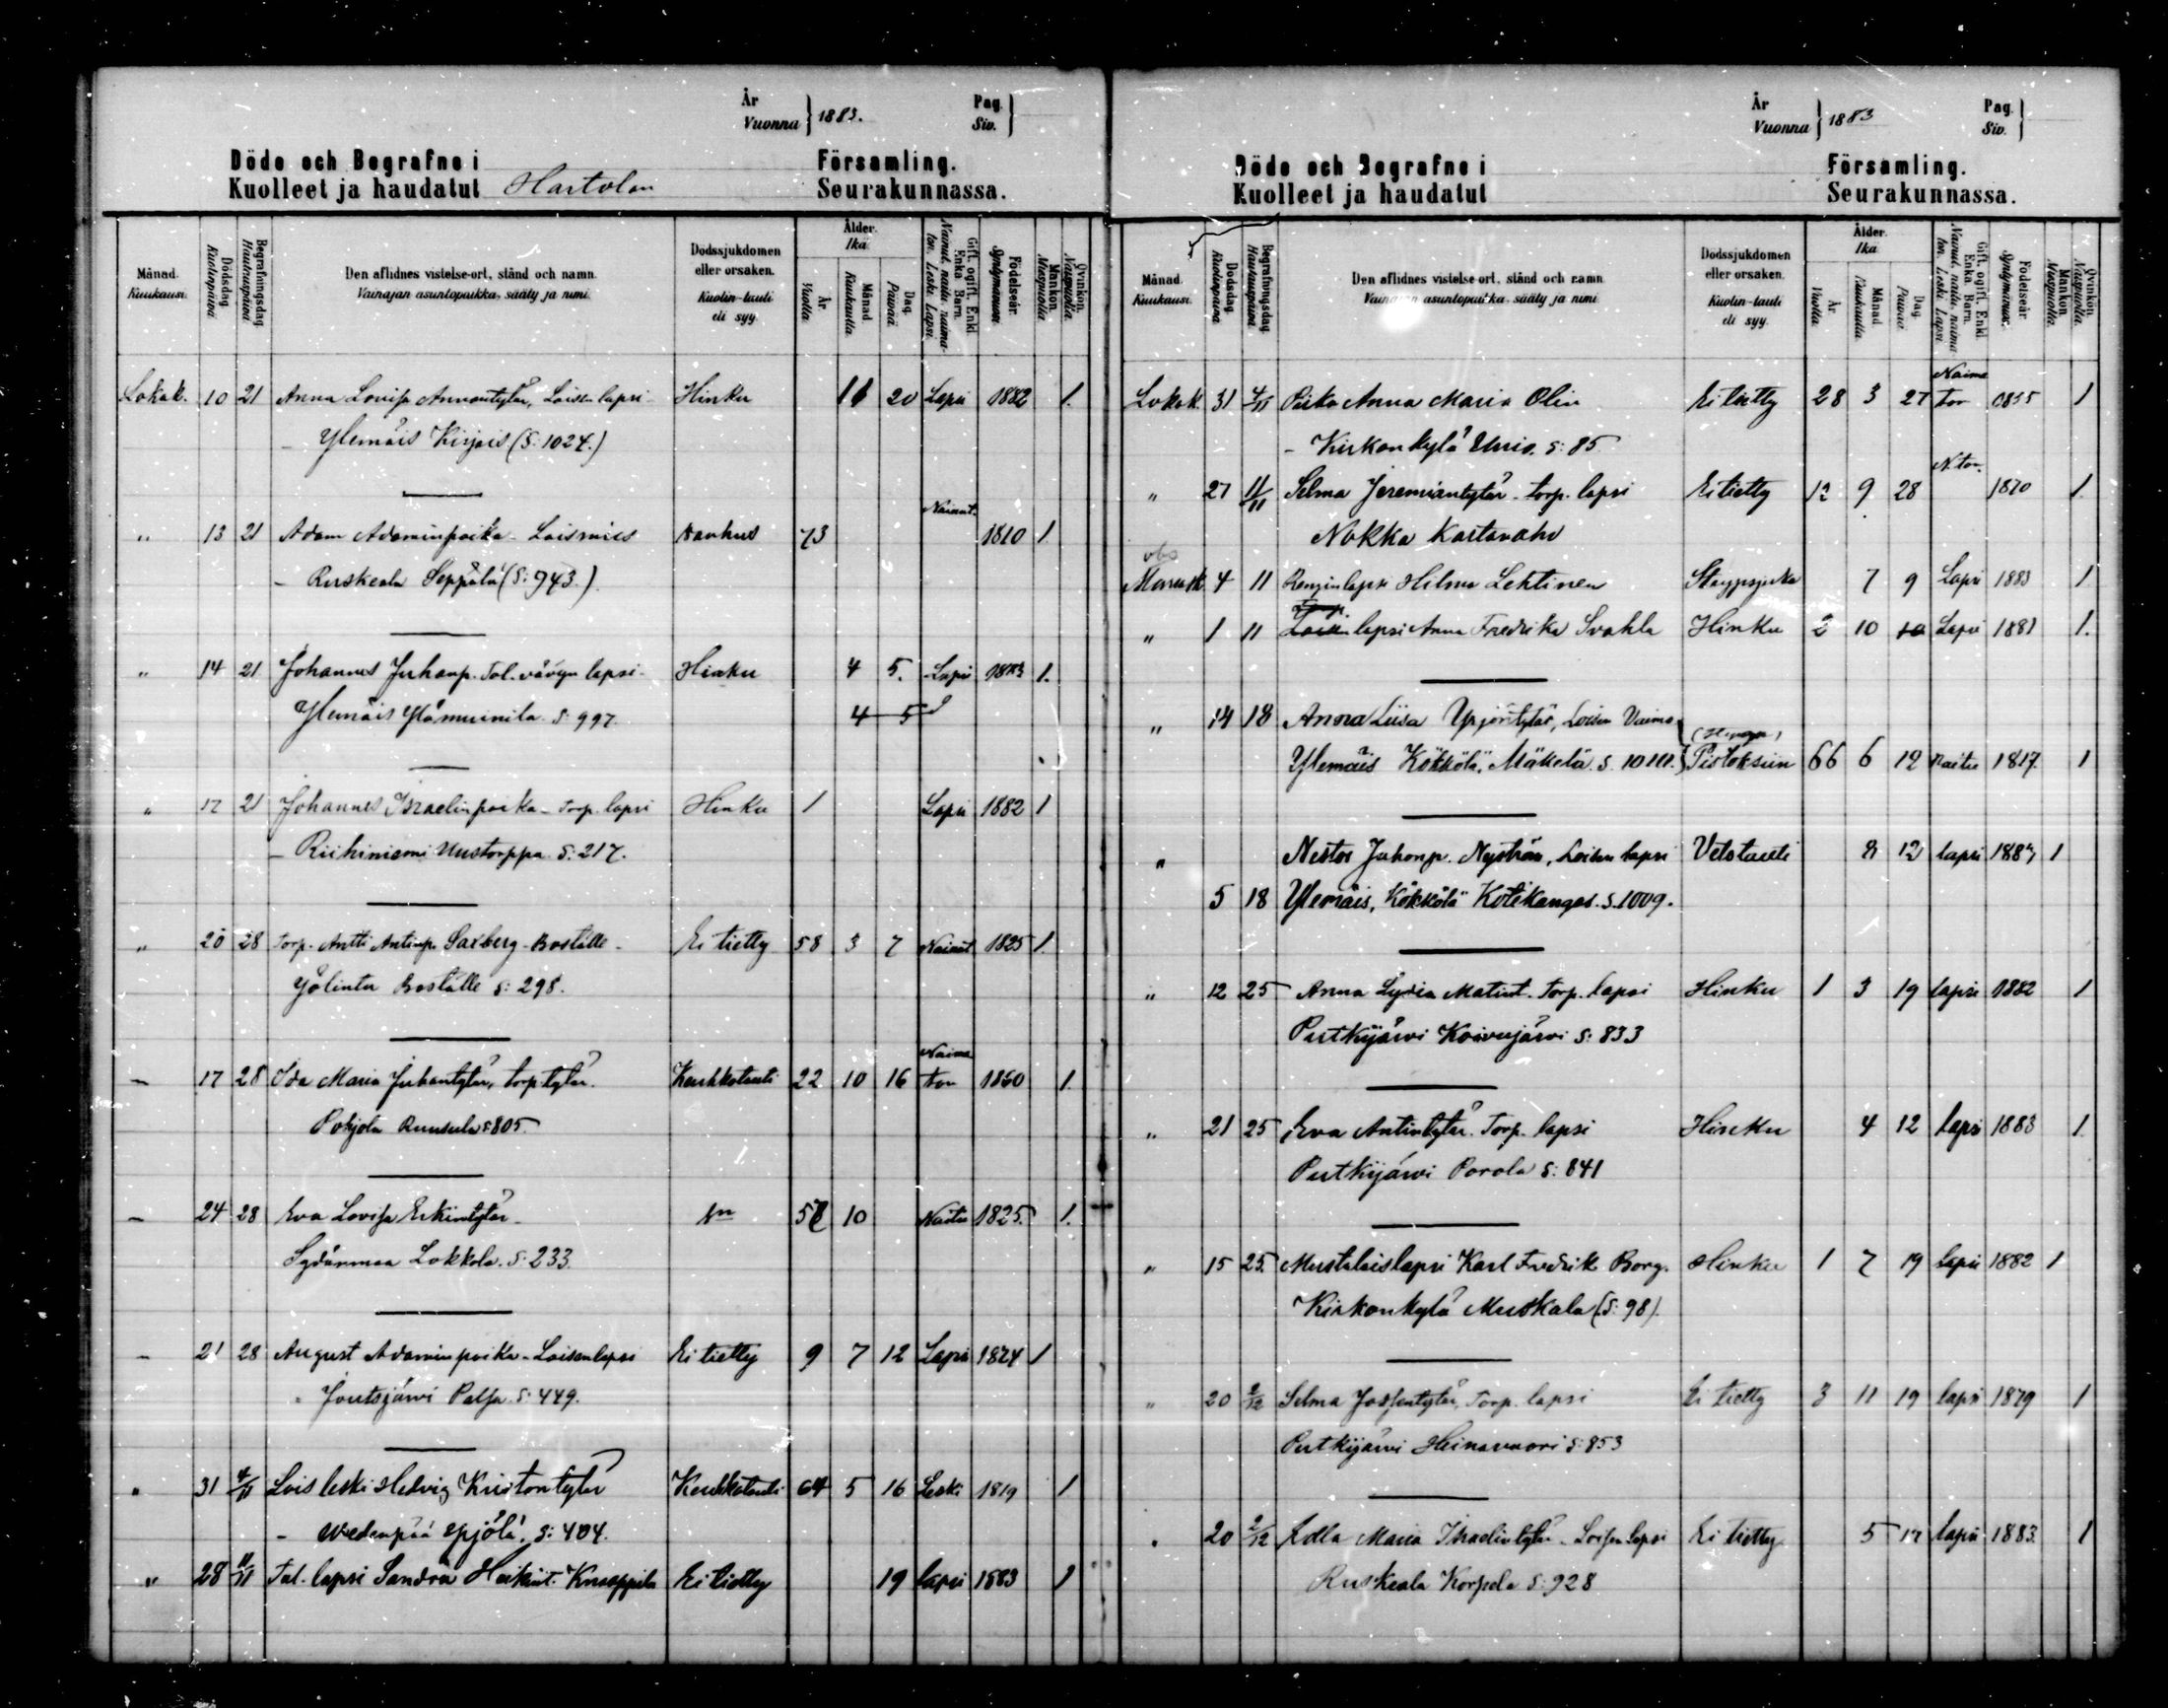 År
Vuonna } 1883.
Pag.
Siv. }
Döde och Begrafne i Församling.
Kuolleet ja haudatut Hartolan Seurakunnassa.
Månad. Kuukausi.
Dödsdag. Kuolinpäivä
Begrafningsdag. Hautauspäivä
Den aflidnes vistelse-ort, stånd och namn.
Vainajan asuntopaikka, sääty ja nimi.
Dödssjukdomen eller orsaken.
Kuolin-tauti eli syy.
Ålder. Ikä.
År. Vuotta.
Månad. Kuukautta.
Dag. Päivää.
Gift, ogift, Enkl. Enka. Barn.
Nainut, naitu, naimaton. Leski. Lapsi.
Födelseår. Syntymävuosi.
Mankön. Miespuolia.
Qvinkön. Naispuolia.
Lokak. 10 21 Anna Lovisa Annantytär, Loisen lapsi - Hinku 11 20 Lapsi 1882 1.
- Ylemäis Kirjais (S: 1024.)
" 13 21 Adam Adaminpoika - Loismies vanhus 73 Nainut. 1810 1
- Ruskeala Seppälä (S: 943.)
" 14 21 Johannes Juhanp. Tal. vävyn lapsi - Hinku 4 5. Lapsi 1883 1.
Ylemäis Ylämuinila. S: 997. 4 5
" 17 21 Johannes Israelinpoika - Torp. lapsi Hinku 1 Lapsi 1882 1
- Riihiniemi Uustorppa S: 217.
" 20 28 Torp. Antti Antinp. Saxberg - Boställe - Ei tietty 58 3 7 Nainut 1825 1.
Yölintu Boställe S: 298.
- 17 28 Ida Maria Juhantytär, torp. tytär. Keuhkotauti 22 10 16 Naimaton 1860 1.
Pohjola Ruusula S: 805.
- 24 28 Eva Lovisa Erkintytär - 57 10 Naitu 1825. 1.
Sydänmaa Lokkola. S: 233.
- 21 28 August Adaminpoika - Loisenlapsi Ei tietty 9 7 12 Lapsi 1874 1
" Joutsjärvi Palsa S: 449.
" 31 4/11 Lois leski Hedvig Kristontytär Keuhkotauti 64 5 16 Leski 1819 1
- Wedenpää S: 404.
" 28 11/11 Tal. lapsi Sandra Heikint. Knaappila Ei tietty 19 lapsi 1883 1
År
Vuonna } 1883
Pag.
Siv. }
Döde och Begrafne i Församling.
Kuolleet ja haudatut Seurakunnassa.
Månad. Kuukausi.
Dödsdag. Kuolinpäivä
Begrafningsdag. Hautauspäivä
Den aflidnes vistelse-ort, stånd och namn.
Vainajan asuntopaikka, sääty ja nimi.
Dödssjukdomen eller orsaken.
Kuolin-tauti eli syy.
Ålder. Ikä.
År. Vuotta.
Månad. Kuukautta.
Dag. Päivää.
Gift, ogift, Enkl. Enka. Barn.
Nainut, naitu, naimaton. Leski. Lapsi.
Födelseår. Syntymävuosi.
Mankön. Miespuolia.
Qvinkön. Naispuolia.
Lokak. 31 4/11 Piika Anna Maria Olin Ei tietty 28 3 27 Naimaton 1855 1
- Kirkonkylä S: 85.
" 27 11/11 Selma Jeremiantytär - torp. lapsi Ei tietty 12 9 28 N.ton. 1870 1
Nokka Kartanaho
obs
Marrask. 4 11 Renginlapsi Hilma Lehtinen 7 9 Lapsi 1883 1
" 1 11 lapsi Anna Fredrika Svahla Hinku 2 10 Lapsi 1881 1.
" 14 18 Anna Liisa Yrjöntytär, Loisen Vaimo
Ylemäis Kökkölä, Mäkelä. S. Pistoksiin 66 6 12 Naitu 1817. 1
" Nestor Juhonp. Nyström, Loisen lapsi Vetotauti 8 12 lapsi 1883 1
5 18 Ylemäis, Kökkölä Kotikangas. S. 1009.
" 12 25 Anna Lydia Matint. Torp. lapsi Hinku 1 3 19 lapsi 1882 1
Putkijärwi Koivujärwi S: 833
" 21 25 Eva Antintytär. Torp. lapsi Hinku 4 12 lapsi 1883 1.
Putkijärwi Porola S: 841
" 15 25. Mustalaislapsi Karl Fredrik Borg. Hinku 1 7 19 lapsi 1882 1
Kirkonkylä Muskala (S: 98).
" 20 2/12 Selma Josefintytär, Torp. lapsi Ei tietty 3 11 19 lapsi 1879 1
Putkijärwi Heinavuori S: 853
" 20 2/12 Edla Maria Israelintytär - Loisen lapsi Ei tietty 5 17 lapsi 1883. 1
Ruskeala Korpela S: 928